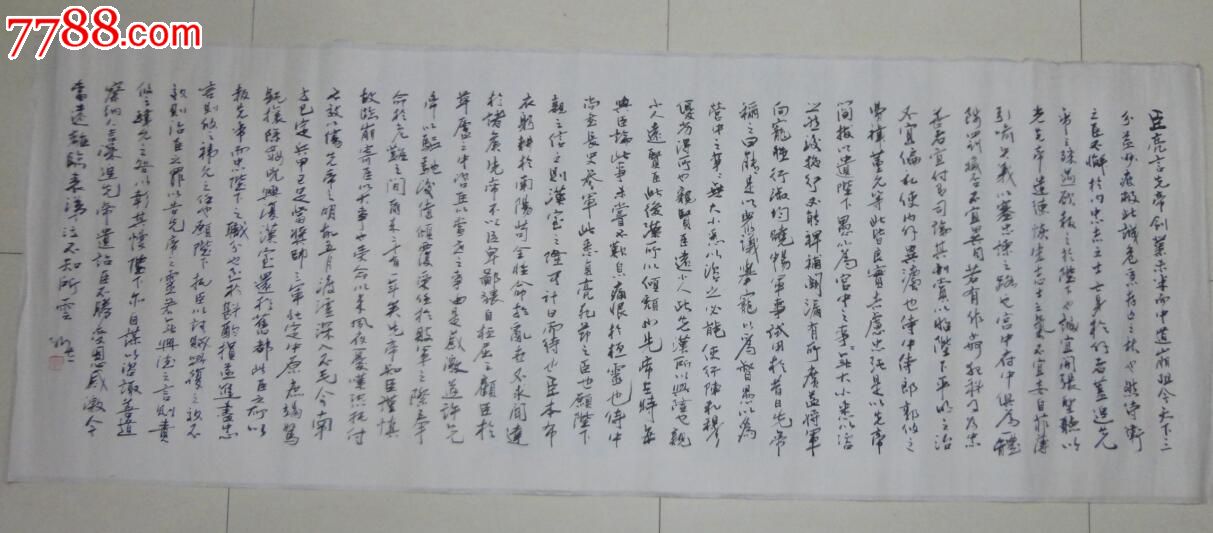 7788.com
臣亮言先帝創業未半而中道崩殂今天下三
分益州疲敝此誠危急存亡之秋也然侍衛
之臣不懈於內忠志之士忘身於外者蓋追先
帝之殊遇欲報之於陛下也誠宜開張聖聽以
光先帝遺德恢宏志士之氣不宜妄自菲薄
引喻失義塞忠諫之路也宮中府中俱為一體
陟罰臧否不宜異同若有作奸犯科及為忠
善者宜付有司論其刑賞以昭陛下平明之治
不宜偏私使內外異法也侍中侍郎郭攸之
費禕董允等此皆良實志慮忠純是以先帝
簡拔以遺陛下愚以為宮中之事事無大小悉以咨
之然後施行必能裨補闕漏有所廣益將軍
向寵性行淑均曉暢軍事試用於昔日先帝
稱之曰能是以眾議舉寵以為督愚以為
營中之事事無大小悉以咨之必能使行陣和穆
優劣得所也親賢臣遠小人此先漢所以興隆也親
小人遠賢臣此後漢所以傾頹也先帝在時每
與臣論此事未嘗不歎息痛恨於桓靈也侍中
尚書長史參軍此悉貞亮死節之臣也願陛下
親之信之則漢室之隆可計日而待也臣本布
衣躬耕於南陽苟全性命於亂世不求聞達
於諸侯先帝不以臣卑鄙猥自枉屈三顧臣於
草廬之中咨臣以當世之事由是感激遂許先
帝以驅馳後值傾覆受任於敗軍之際奉
命於危難之間爾來二十有一年矣先帝知臣謹慎
故臨崩寄臣以大事也受命以來夙夜憂嘆恐託付
不效以傷先帝之明故五月渡瀘深入不毛今南
方已定兵甲已足當獎帥三軍北定中原庶竭駑
鈍攘除奸凶興復漢室還於舊都此臣之所以
報先帝而忠陛下之職分也至於斟酌損益進盡忠
言則攸之禕允之任也願陛下託臣以討賊興復之效不
效則治臣之罪以告先帝之靈若無興德之言則責
攸之禕允之咎以彰其慢陛下亦自謀以咨諏善道
察納雅言深追先帝遺詔臣不勝受恩感激今
當遠離臨表涕泣不知所雲